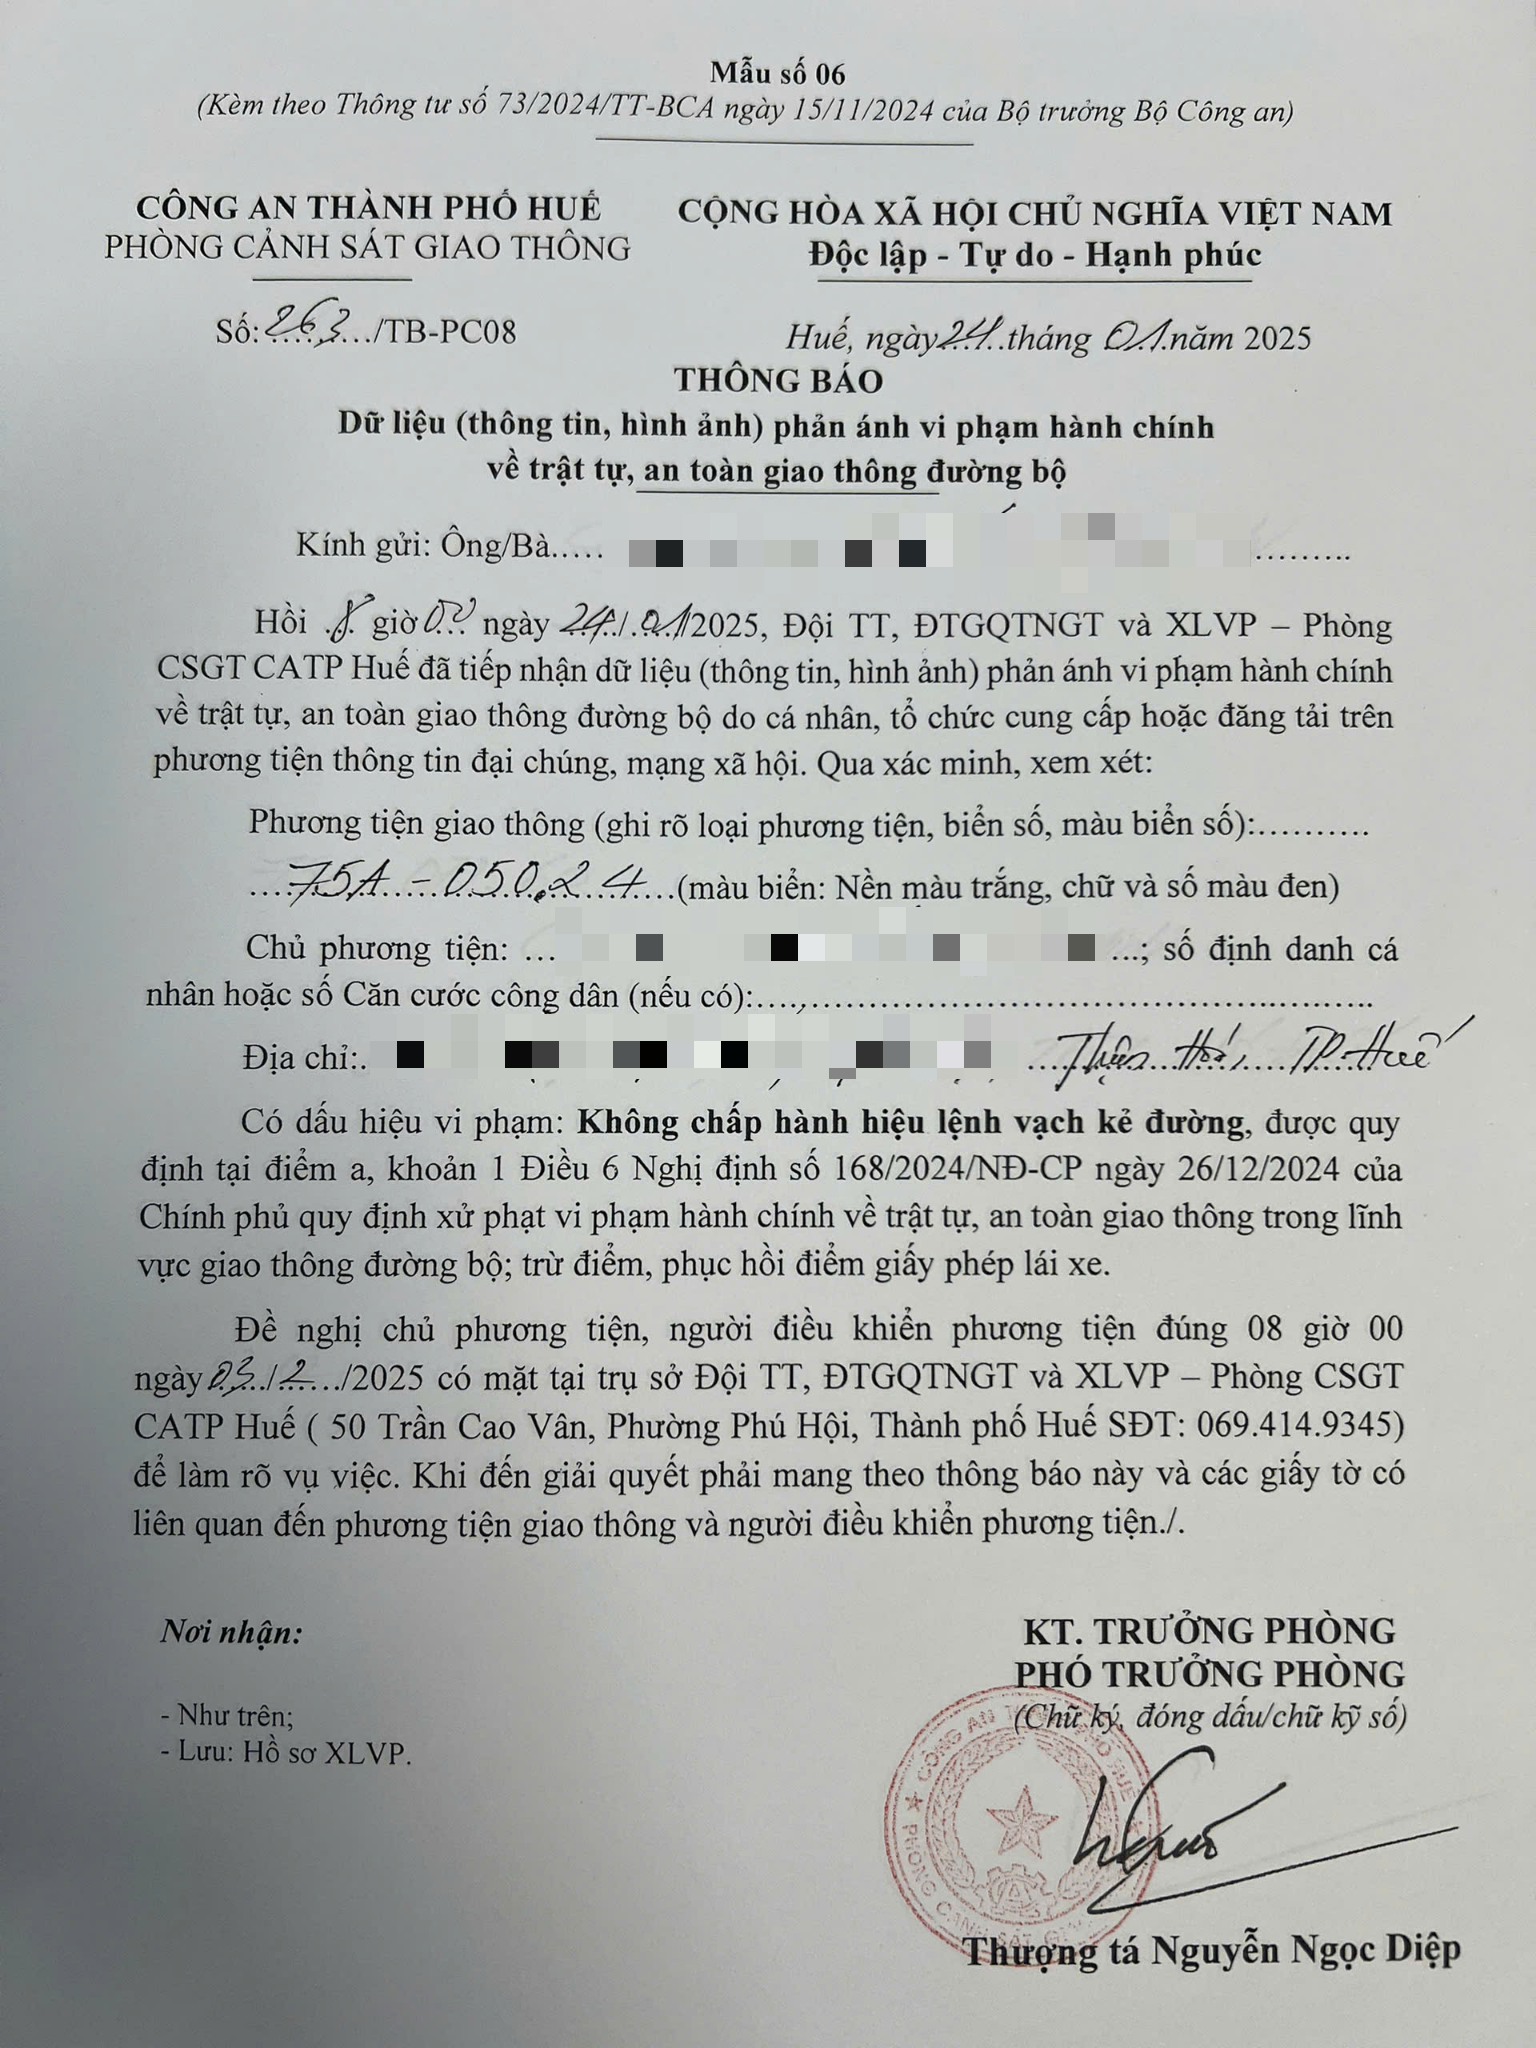 Mẫu số 06
(Kèm theo Thông tư số 73/2024/TT-BCA ngày 15/11/2024 của Bộ trưởng Bộ Công an)
CÔNG AN THÀNH PHỐ HUẾ
PHÒNG CẢNH SÁT GIAO THÔNG
CỘNG HÒA XÃ HỘI CHỦ NGHĨA VIỆT NAM
Độc lập - Tự do - Hạnh phúc
Số: 263/TB-PC08
Huế, ngày 24 tháng 01 năm 2025
THÔNG BÁO
Dữ liệu (thông tin, hình ảnh) phản ánh vi phạm hành chính
về trật tự, an toàn giao thông đường bộ
Kính gửi: Ông/Bà..... .........
Hồi 8 giờ 00 ngày 24/01/2025, Đội TT, ĐTGQTNGT và XLVP – Phòng
CSGT CATP Huế đã tiếp nhận dữ liệu (thông tin, hình ảnh) phản ánh vi phạm hành chính
về trật tự, an toàn giao thông đường bộ do cá nhân, tổ chức cung cấp hoặc đăng tải trên
phương tiện thông tin đại chúng, mạng xã hội. Qua xác minh, xem xét:
Phương tiện giao thông (ghi rõ loại phương tiện, biển số, màu biển số):..........
75A - 050.24 (màu biển: Nền màu trắng, chữ và số màu đen)
Chủ phương tiện: ... ...; số định danh cá
nhân hoặc số Căn cước công dân (nếu có):..........
Địa chỉ:. TP Huế
Có dấu hiệu vi phạm: Không chấp hành hiệu lệnh vạch kẻ đường, được quy
định tại điểm a, khoản 1 Điều 6 Nghị định số 168/2024/NĐ-CP ngày 26/12/2024 của
Chính phủ quy định xử phạt vi phạm hành chính về trật tự, an toàn giao thông trong lĩnh
vực giao thông đường bộ; trừ điểm, phục hồi điểm giấy phép lái xe.
Đề nghị chủ phương tiện, người điều khiển phương tiện đúng 08 giờ 00
ngày 03/2/2025 có mặt tại trụ sở Đội TT, ĐTGQTNGT và XLVP – Phòng CSGT
CATP Huế ( 50 Trần Cao Vân, Phường Phú Hội, Thành phố Huế SĐT: 069.414.9345)
để làm rõ vụ việc. Khi đến giải quyết phải mang theo thông báo này và các giấy tờ có
liên quan đến phương tiện giao thông và người điều khiển phương tiện./.
Nơi nhận:
- Như trên;
- Lưu: Hồ sơ XLVP.
KT. TRƯỞNG PHÒNG
PHÓ TRƯỞNG PHÒNG
(Chữ ký, đóng dấu/chữ kỹ số)
Thượng tá Nguyễn Ngọc Diệp